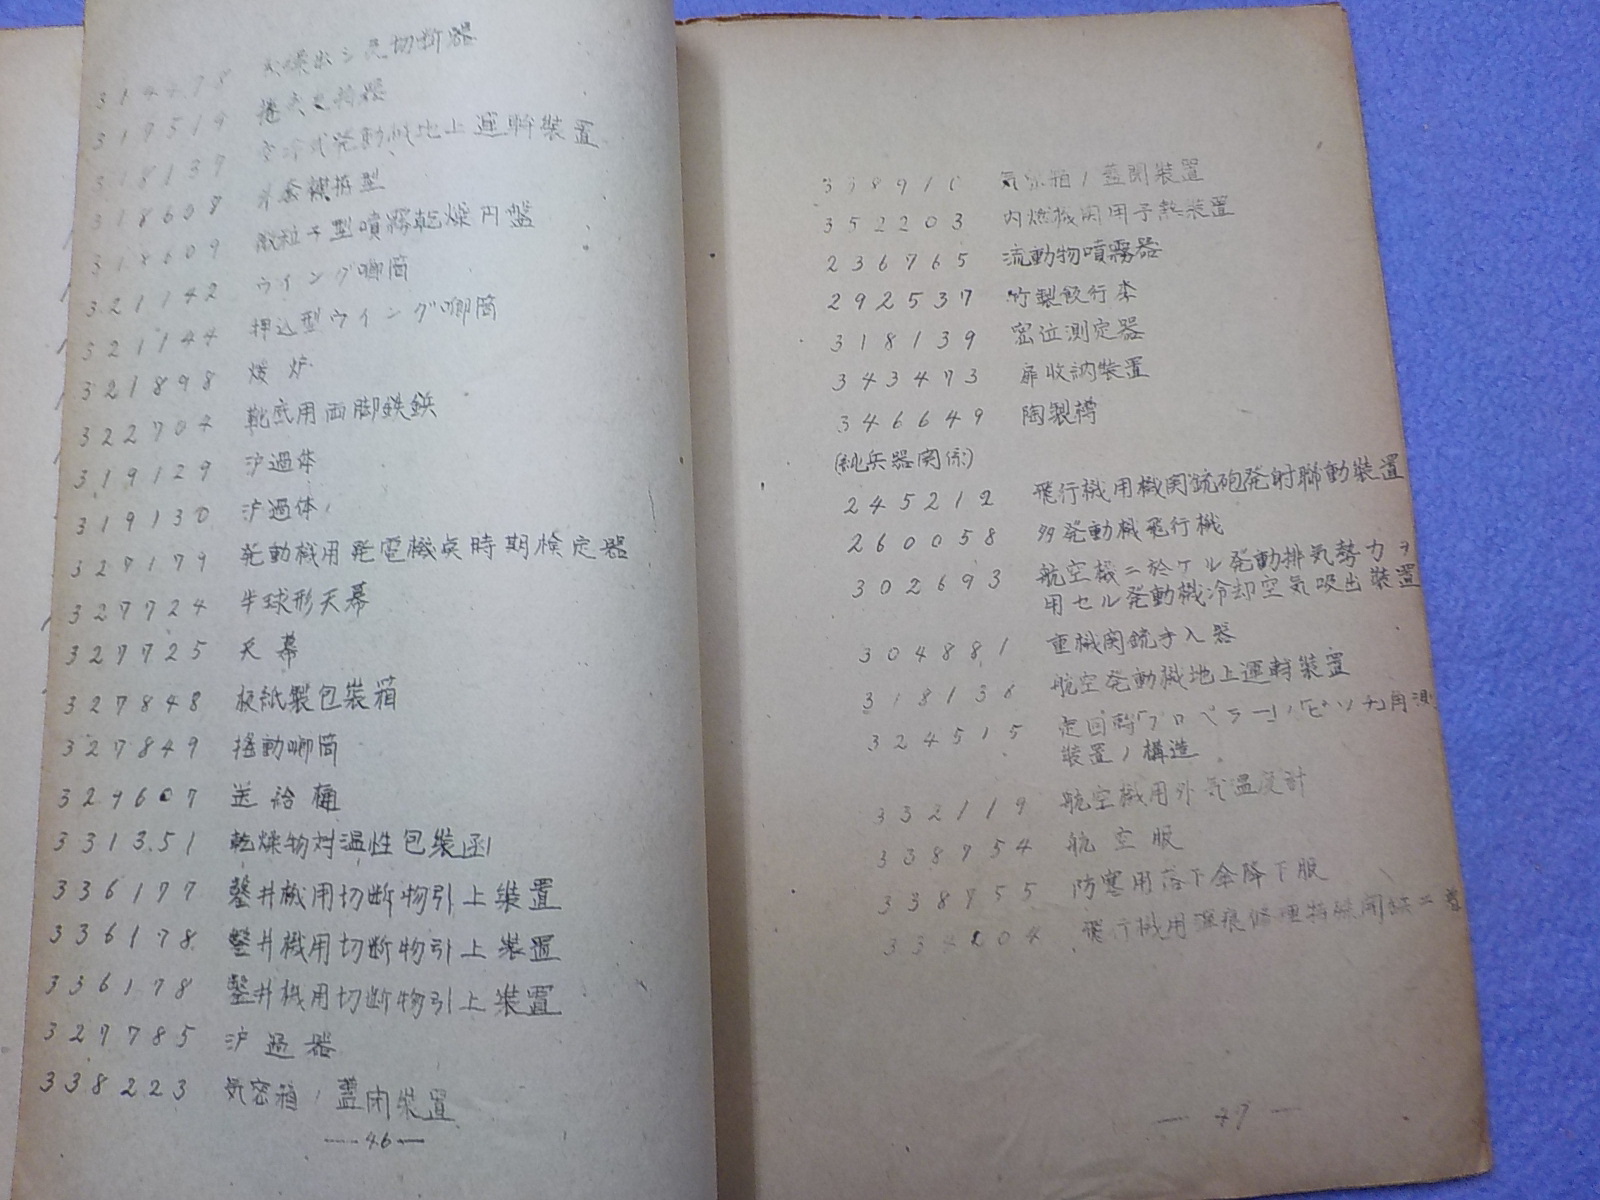 314478 切断器
317519
318137 空冷式発動機地上運転装置
318608 外套裸拵型
318609 型噴霧乾燥円盤
321142 ウイング喞筒
321144 押込型ウイング喞筒
321898 煖炉
322704 靴底用両脚鉄鋲
319129 沪過体
319130 沪過体
327179 発動機用発電機点時期検定器
327724 半球形天幕
327725 天幕
327848 板紙製包装箱
327849 搖動喞筒
329607 送給桶
331351 乾燥物対温性包装函
336177 鑿井機用切断物引上装置
336178 鑿井機用切断物引上装置
336178 鑿井機用切断物引上装置
327785 沪過器
338223 気密箱ノ蓋閉装置
—46—
気密箱ノ蓋開装置
352203 内燃機関用予熱装置
236765 流動物噴霧器
292537 竹製飯行李
318139 密位測定器
343473 扉收納装置
346649 陶製樽
(純兵器関係)
245212 飛行機用機関銃砲発射聯動装置
260058 多発動機飛行機
302693 航空機ニ於ケル発動排気勢力ヲ
用セル発動機冷却空気吸出装置
304881 重機関銃手入器
318136 航空発動機地上運転装置
324515 定回転「プロペラー」ノ「ピツチ」角測
装置ノ構造
332119 航空機用外気温度計
338754 航空服
338755 防寒用落下傘降下服
334204 飛行機用弾痕修理特殊
— 47 —